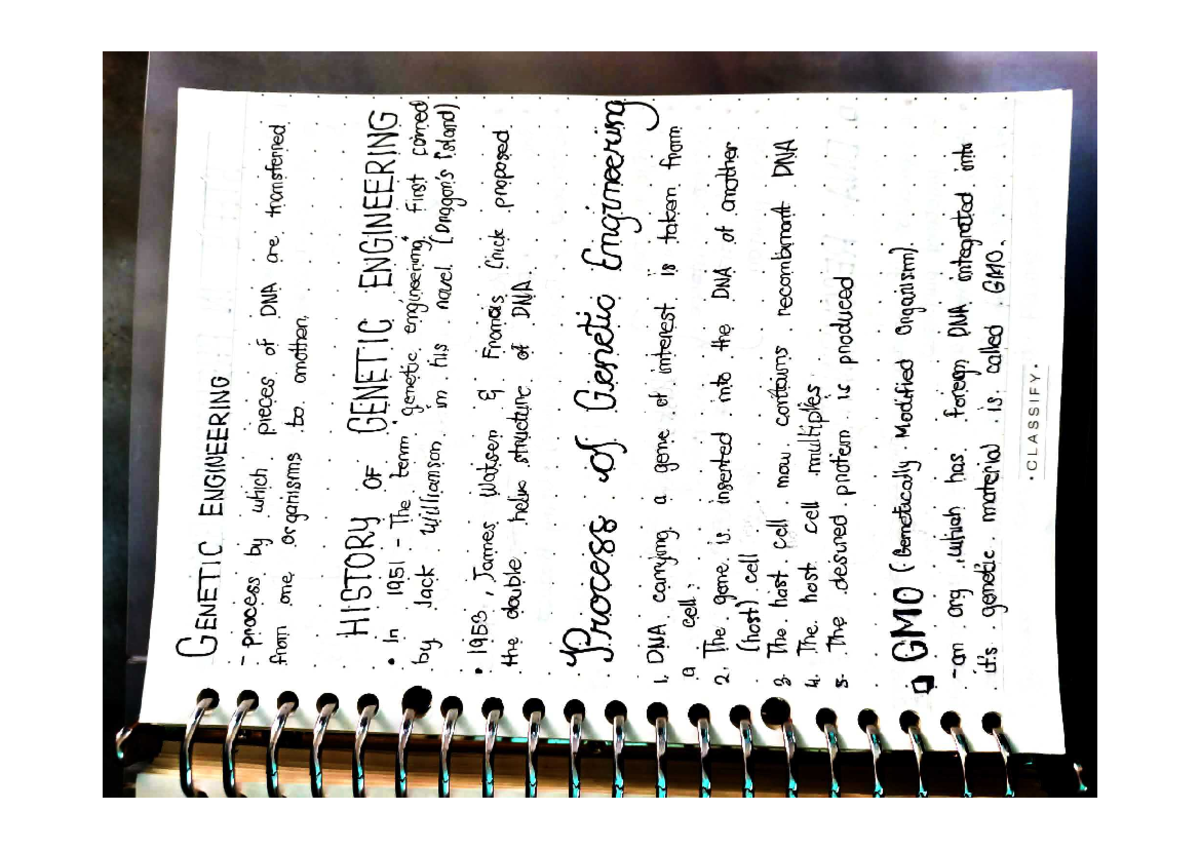 GENETIC ENGINEERING
- process by which pieces of DNA are transferred
from one organisms to another.
HISTORY OF GENETIC ENGINEERING
• In 1951 - The term "genetic engineering" first coined
by Jack Williamson in his novel (Dragon's Island)
• 1953, James Watson & Francis Crick proposed
the double helix structure of DNA.
Process of Genetic Engineering
1. DNA carrying a gene of interest is taken from
a cell.
2. The gene is inserted into the DNA of another
(host) cell
3. The host cell now contains recombinant DNA
4. The host cell multiplies
5. The desired protein is produced
GMO (Genetically Modified Organism).
-an org. which has foreign DNA integrated into
it's genetic material is called GMO.
• CLASSIFY •